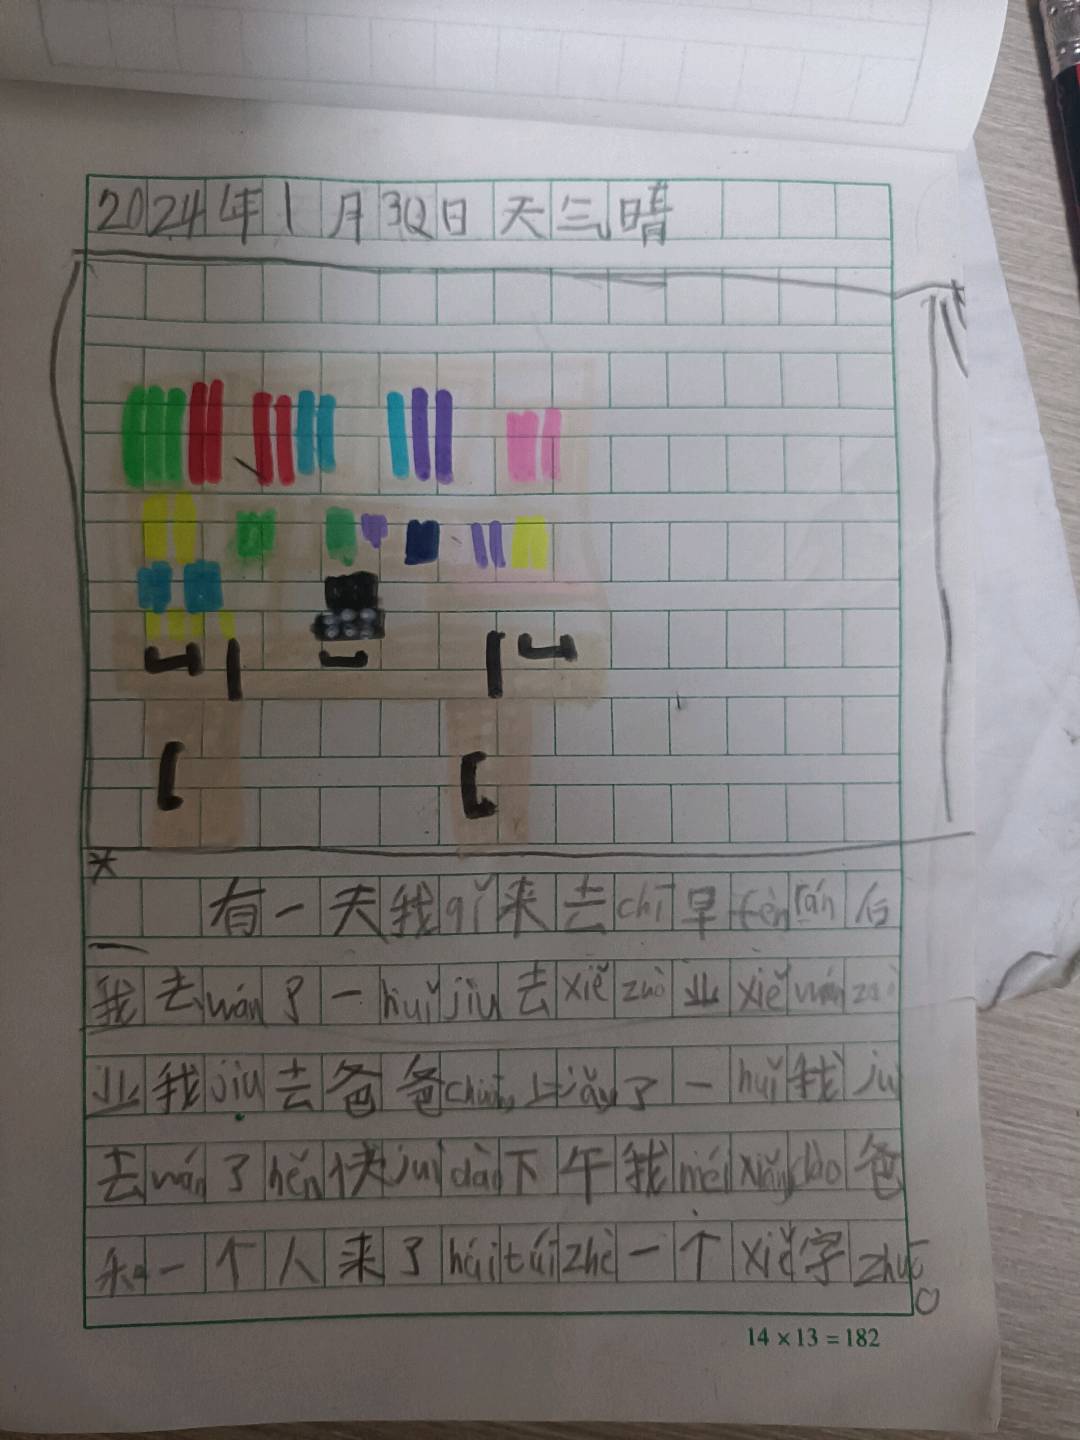 2024年1月30日天气晴
有一天我qǐ来去chī早fènrán后
我去wán了一huǐjiù去xiězuò业xiěwánzuò
业我jiu去爸爸上了一huǐ我ju
去wán了hěn快juidào下午我méixiǎngdào爸
和一个人来了háitúizhè一个xiě字zhuō。
14 × 13 = 182